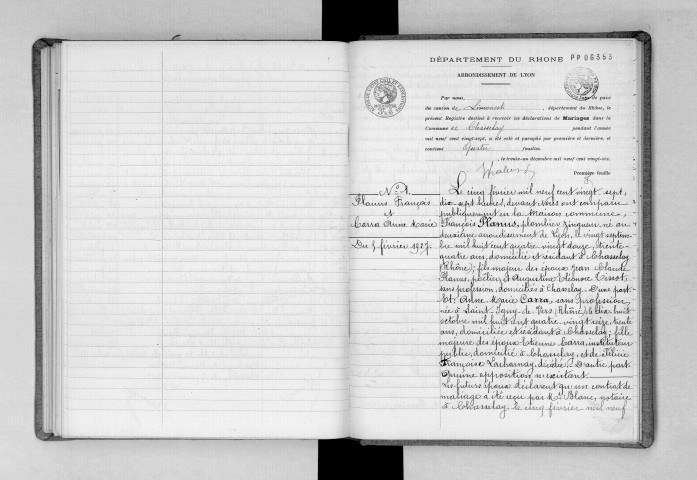 DÉPARTEMENT DU RHONE PP06353
ARRONDISSEMENT DE LYON
Par nous, juge de paix
du canton de Limonest, département du Rhône, le
présent Registre destiné à recevoir les déclarations de Mariages dans la
Commune de Chasselay pendant l'année
mil neuf cent vingt-sept, a été coté et paraphé par première et dernière, et
contient quatre feuilles.
Le trente-un décembre mil neuf cent vingt-six.
Première feuille
No 1
Planus François
et
Carra Anne Marie
Du 5 février 1927.
Le cinq février mil neuf cent vingt-sept,
dix-sept heures, devant Nous ont comparu
publiquement en la maison commune,
François Planus, plombier zingueur, né au
deuxième arrondissement de Lyon, le vingt septem-
bre mil huit cent quatre vingt douze, trente-
quatre ans, domicilié et résidant à Chasselay
(Rhône); fils majeur des époux Jean Claude
Planus, et Augustine Eléonore Tissot,
sans profession, domiciliés à Chasselay. D'une part
Et Anne Marie Carra, sans profession,
née à Saint-Igny-de-Vers (Rhône) le dix-huit
octobre mil huit cent quatre vingt seize, trente
ans, domiciliée et résidant à Chasselay; fille
majeure des époux Etienne Carra, instituteur
public, domicilié à Chasselay, et de Félicie
Françoise, décédée. D'autre part
Aucune opposition n'existant.
Les futurs époux déclarent qu'un contrat de
mariage a été reçu par Me Blanc, notaire
à Chasselay, le cinq février mil neuf